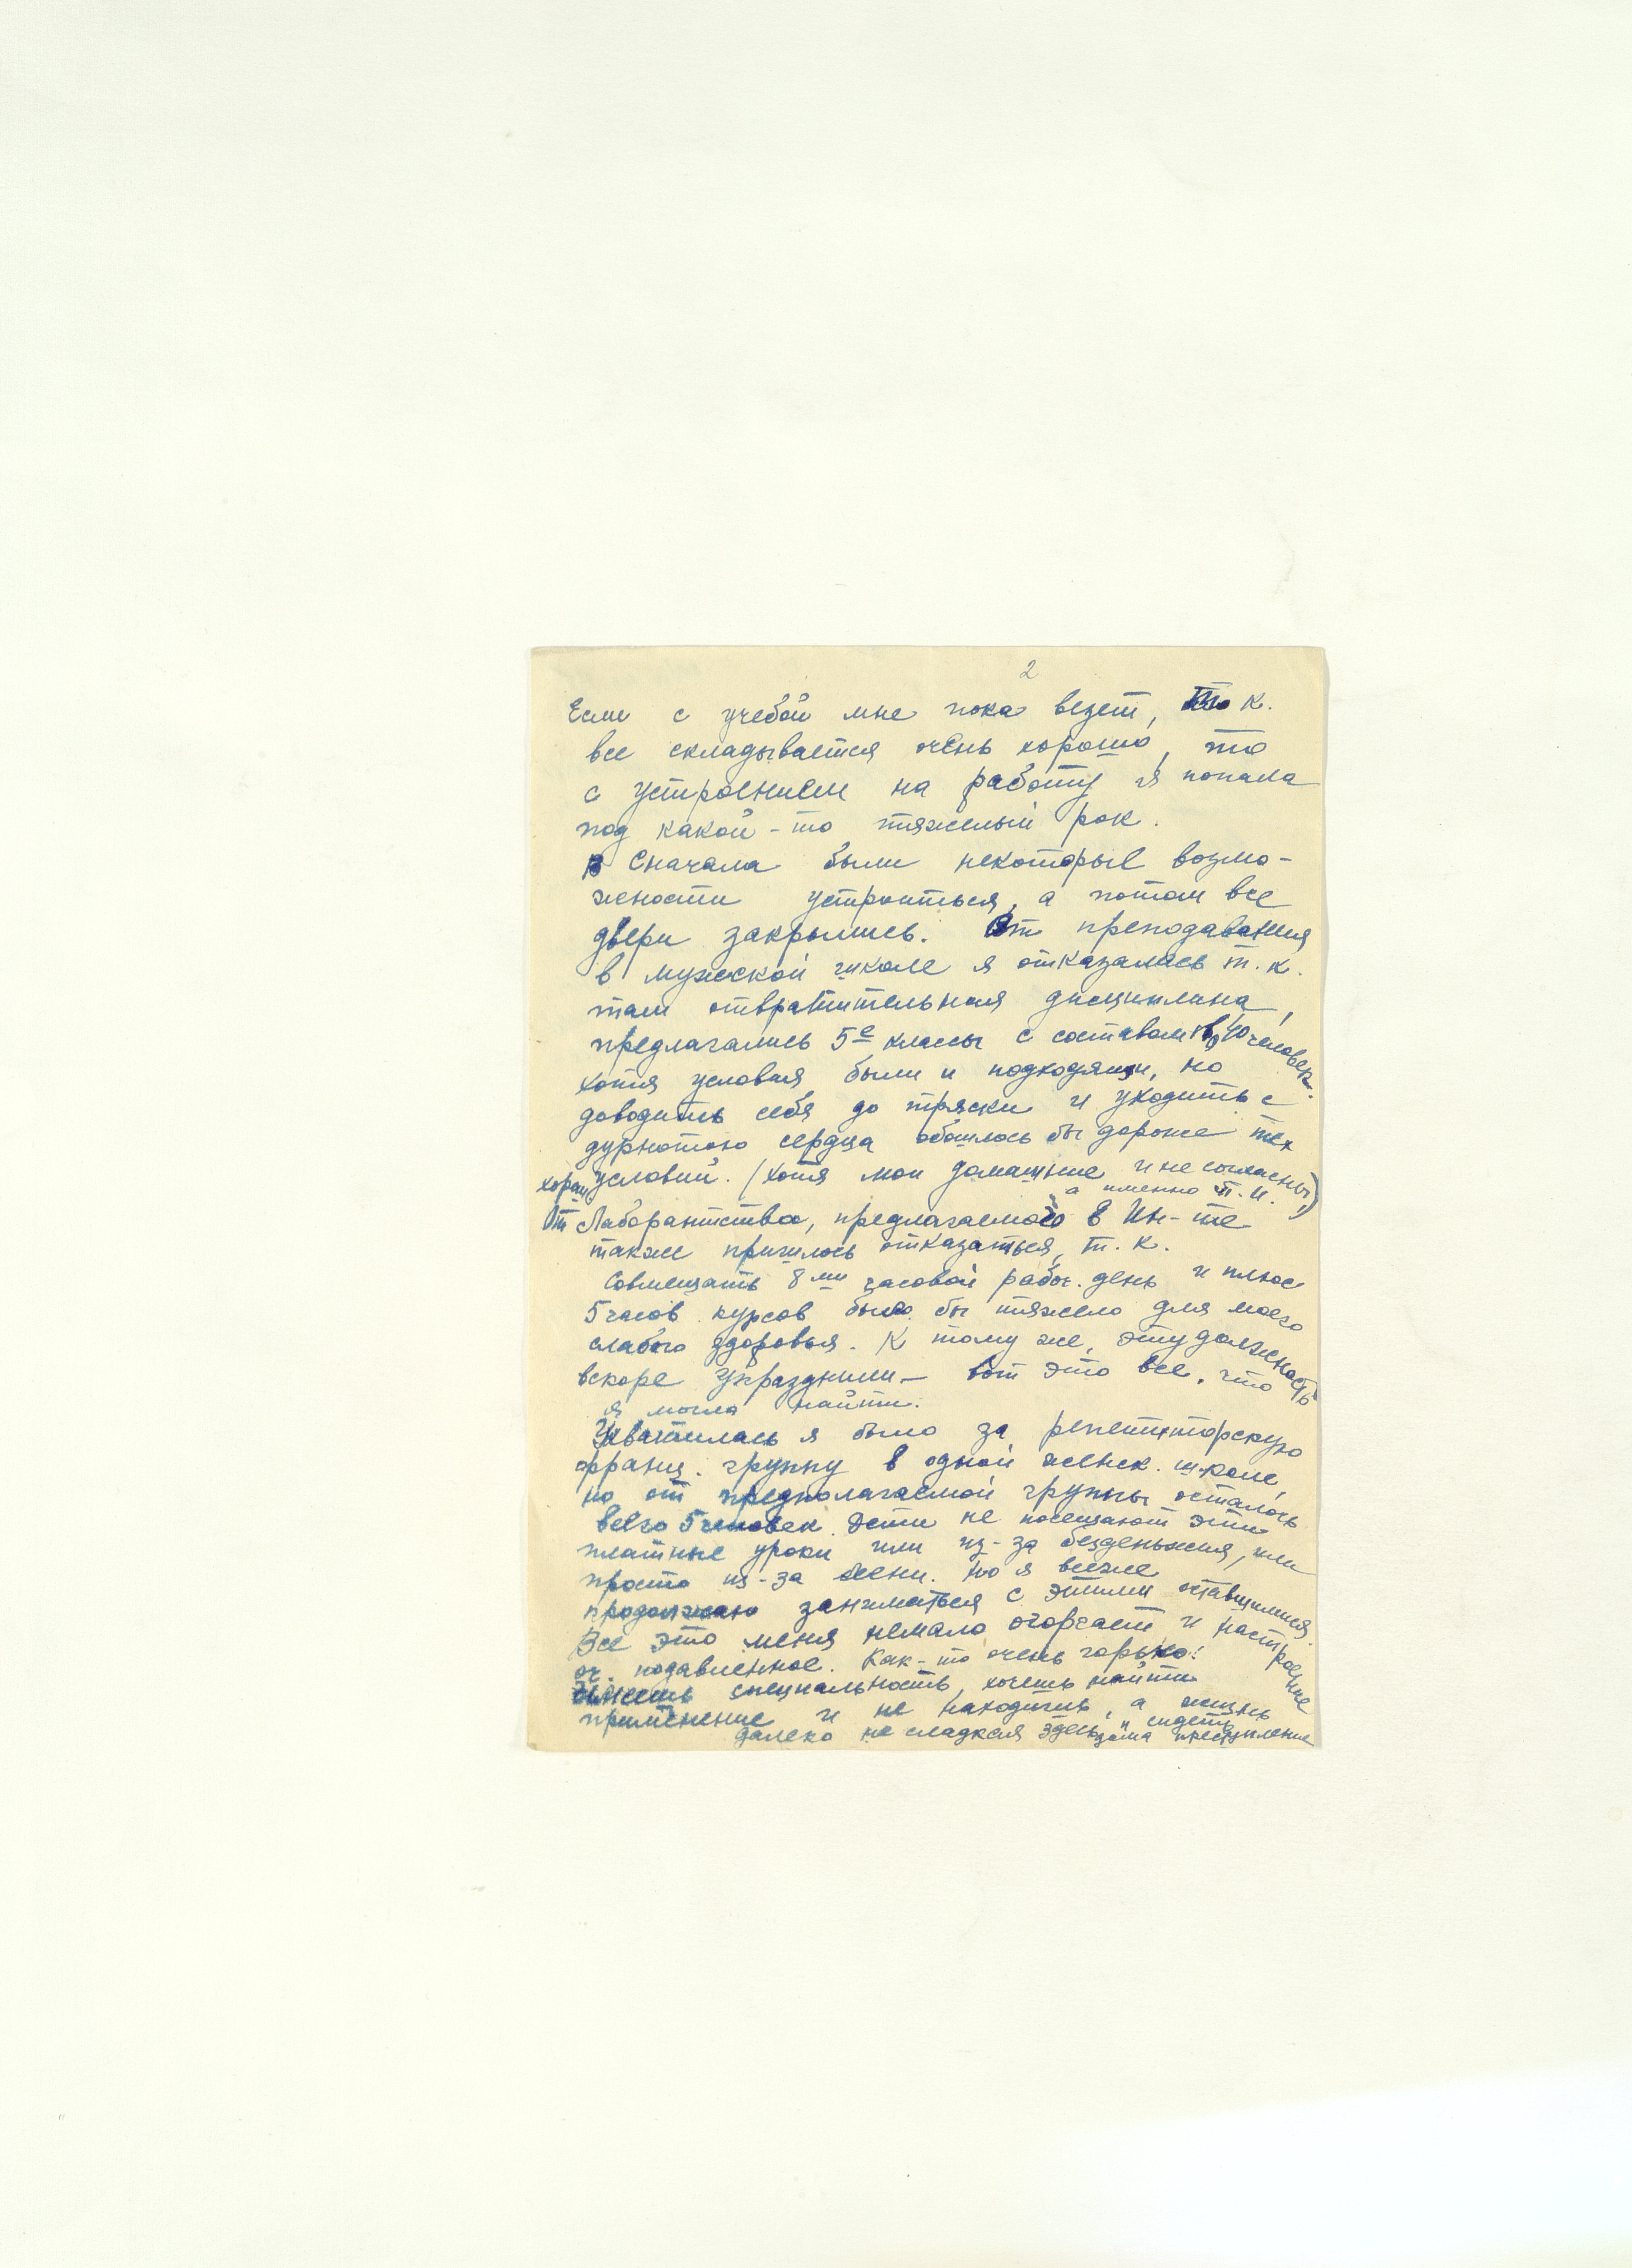 2
Если с учебой мне пока везет, т.к.
все складывается очень хорошо, то
с устроением на работу я попала
под какой-то тяжелый рок.
Сначала были некоторые возмо-
жности устроиться, а потом все
двери закрылись. От преподавания
в мужской школе я отказалась т.к.
там отвратительная дисциплина,
предлагались 5е классы с составом в 40 человек.
Хотя условия были и подходящи, но
доводить себя до тряски и уходить с
дурнотою сердца обошлось бы дороже тех
хорош условий. (хотя мои домашние и не согласны,
а именно Т.И.)
От Лаборантства, предлагаемого в Ин-те
также пришлось отказаться, т.к.
Совмещать 8ми часовой рабоч. день и плюс
5 часов курсов было бы тяжело для моего
слабого здоровья. К тому же, эту должность
вскоре упразднили — вот это все, что
я могла найти.
Ухватилась я было за репетиторскую
франц. группу в одной женск. школе,
но от предполагаемой группы осталось
всего 5 человек. Дети не посещают эти
платные уроки или из-за безденежия, или
просто из-за лени. Но я всеже
продолжаю заниматься с этими оставшимися.
Все это меня немало огорчает и настроение
оч. подавленное. Как-то очень горько!
Имеешь специальность, хочешь найти
применение и не находишь, а жизнь
далеко не сладкая здесь и сидеть
дома преступление